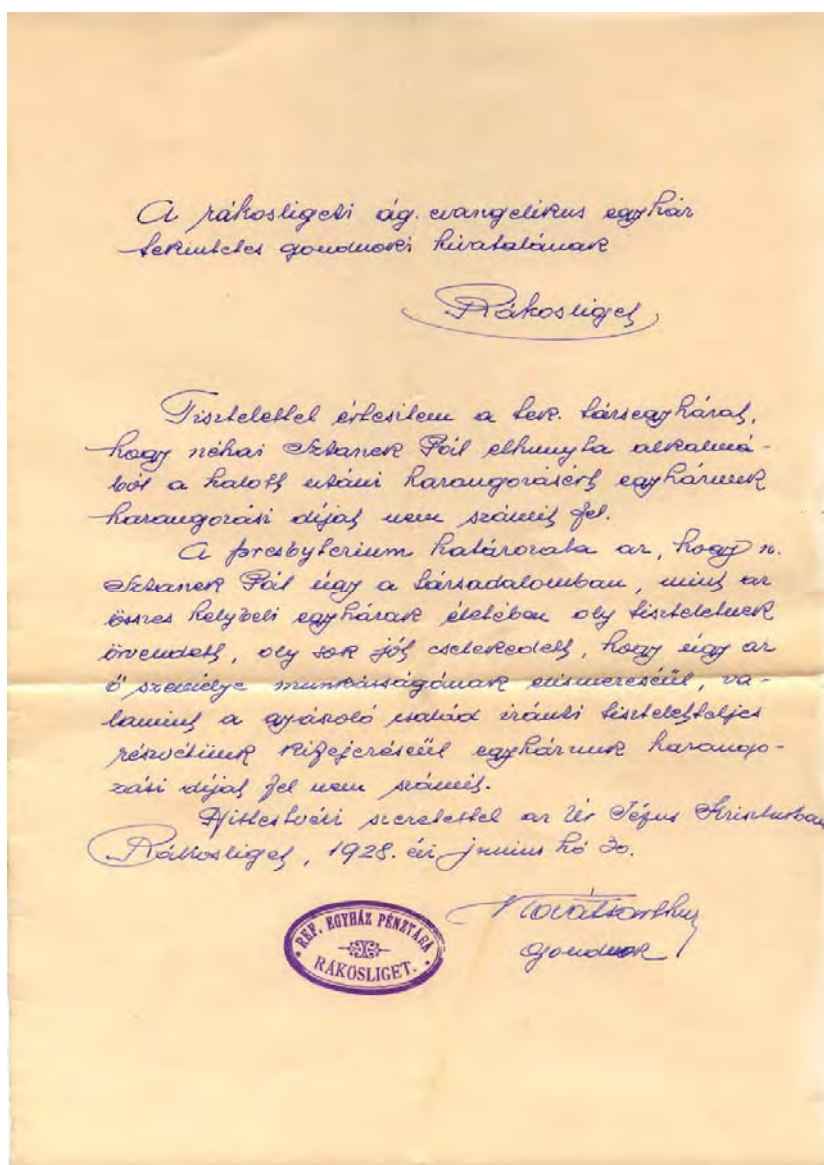 A rákosligeti ág. evangelikus egyház
tekintetes gondnoki hivatalának
Rákosliget
Tisztelettel értesitem a tek. társegyházat,
hogy néhai Sztanek Pál elhunyta alkalmá-
ból a halott utáni harangozásért egyházunk
harangozási díjat nem számit fel.
A presbyterium határozata az, hogy n.
Sztanek Pál úgy a társadalomban, mint az
összes helybeli egyházak életében oly tiszteletnek
örvendett, oly sok jót cselekedett, hogy úgy az
ő személye munkásságának elismeréséül, va-
lamint a gyászoló család iránti tiszteletteljes
részvétünk kifejezéséül egyházunk harango-
zási díjat fel nem számit.
Hittestvéri szeretettel az Úr Jézus Krisztusban
Rákosliget, 1928. évi junius hó 30.
gondnok
REF. EGYHÁZ PÉNZTÁRA
RÁKOSLIGET.